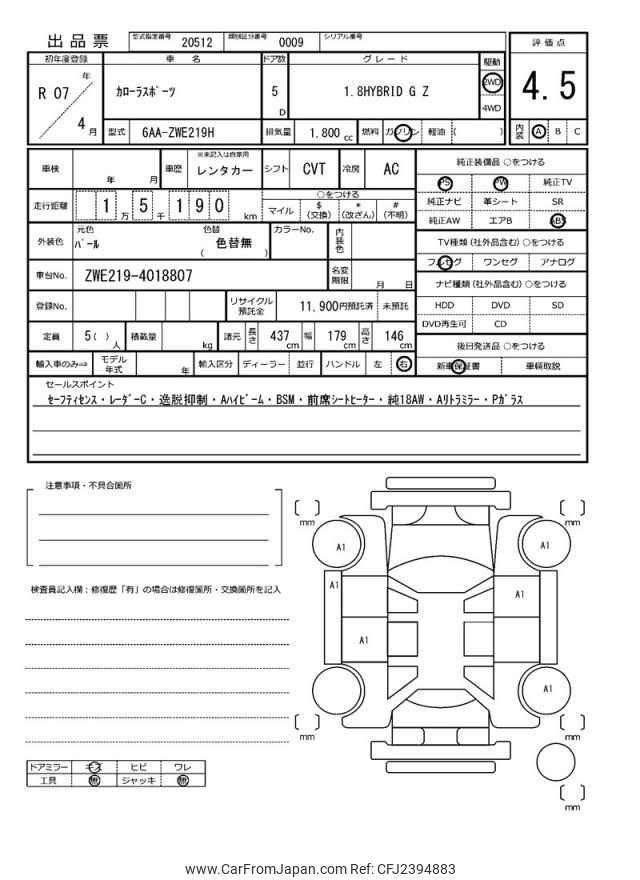 出品票 型式指定番号 20512 類別区分番号 0009 シリアル番号
評価点
初年度登録 車名 ドア数 グレード 駆動
R 07 年 4 月 カローラスポーツ 5 D 1.8HYBRID G Z 2WD 4WD
4.5
型式 6AA-ZWE219H 排気量 1.800 cc 燃料 ガソリン 軽油 ( )
内装 A B C
車検 年 月 車歴 ※未記入は自家用 レンタカー シフト CVT 冷房 AC
純正装備品 ○をつける
PS PW 純正TV
走行距離 1 万 5 千 1 9 0 km ○をつける
マイル $(交換) *(改ざん) #(不明)
純正ナビ 革シート SR
純正AW エアB ABS
外装色 元色 パール 色替 色替無 ( ) カラーNo. 内装色
TV種類 (社外品含む) ○をつける
フルセグ ワンセグ アナログ
車台No. ZWE219-4018807 名変期限 月 日
ナビ種類 (社外品含む) ○をつける
登録No. リサイクル預託金 11,900円預託済 未預託
HDD DVD SD
DVD再生可 CD
定員 5( ) 人 積載量 kg 諸元 長さ 437 cm 幅 179 cm 高さ 146 cm
後日発送品 ○をつける
輸入車のみ⇒ モデル年式 年 輸入区分 ディーラー 並行 ハンドル 左 右
新車保証書 車輌取説
セールスポイント
セーフティセンス・レーダーC・逸脱抑制・Aハイビーム・BSM・前席シートヒーター・純18AW・Aリトラミラー・Pガラス
注意事項・不具合箇所
mm mm
A1 A1
検査員記入欄：修復歴「有」の場合は修復箇所・交換箇所を記入
A1 A1
A1 A1
A1
mm mm
ドアミラー キズ ヒビ ワレ
工具 無 ジャッキ 無
mm
www.CarFromJapan.com Ref: CFJ2394883